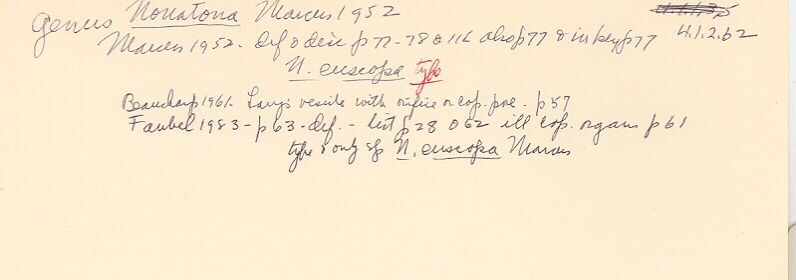 Genus Nonatona Marcus 1952
Marcus 1952 - def & desc p 77-78 & ill. also p 77 & in key p 77 4.1.2.62
N. euscopa type
Beauchamp 1961. Lang's vesicle with orifice n cop. pore - p 57
Faubel 1983 - p 63 - def. - list p 28 & 62 ill cop. organs p 61
type & only sp N. euscopa Marcus